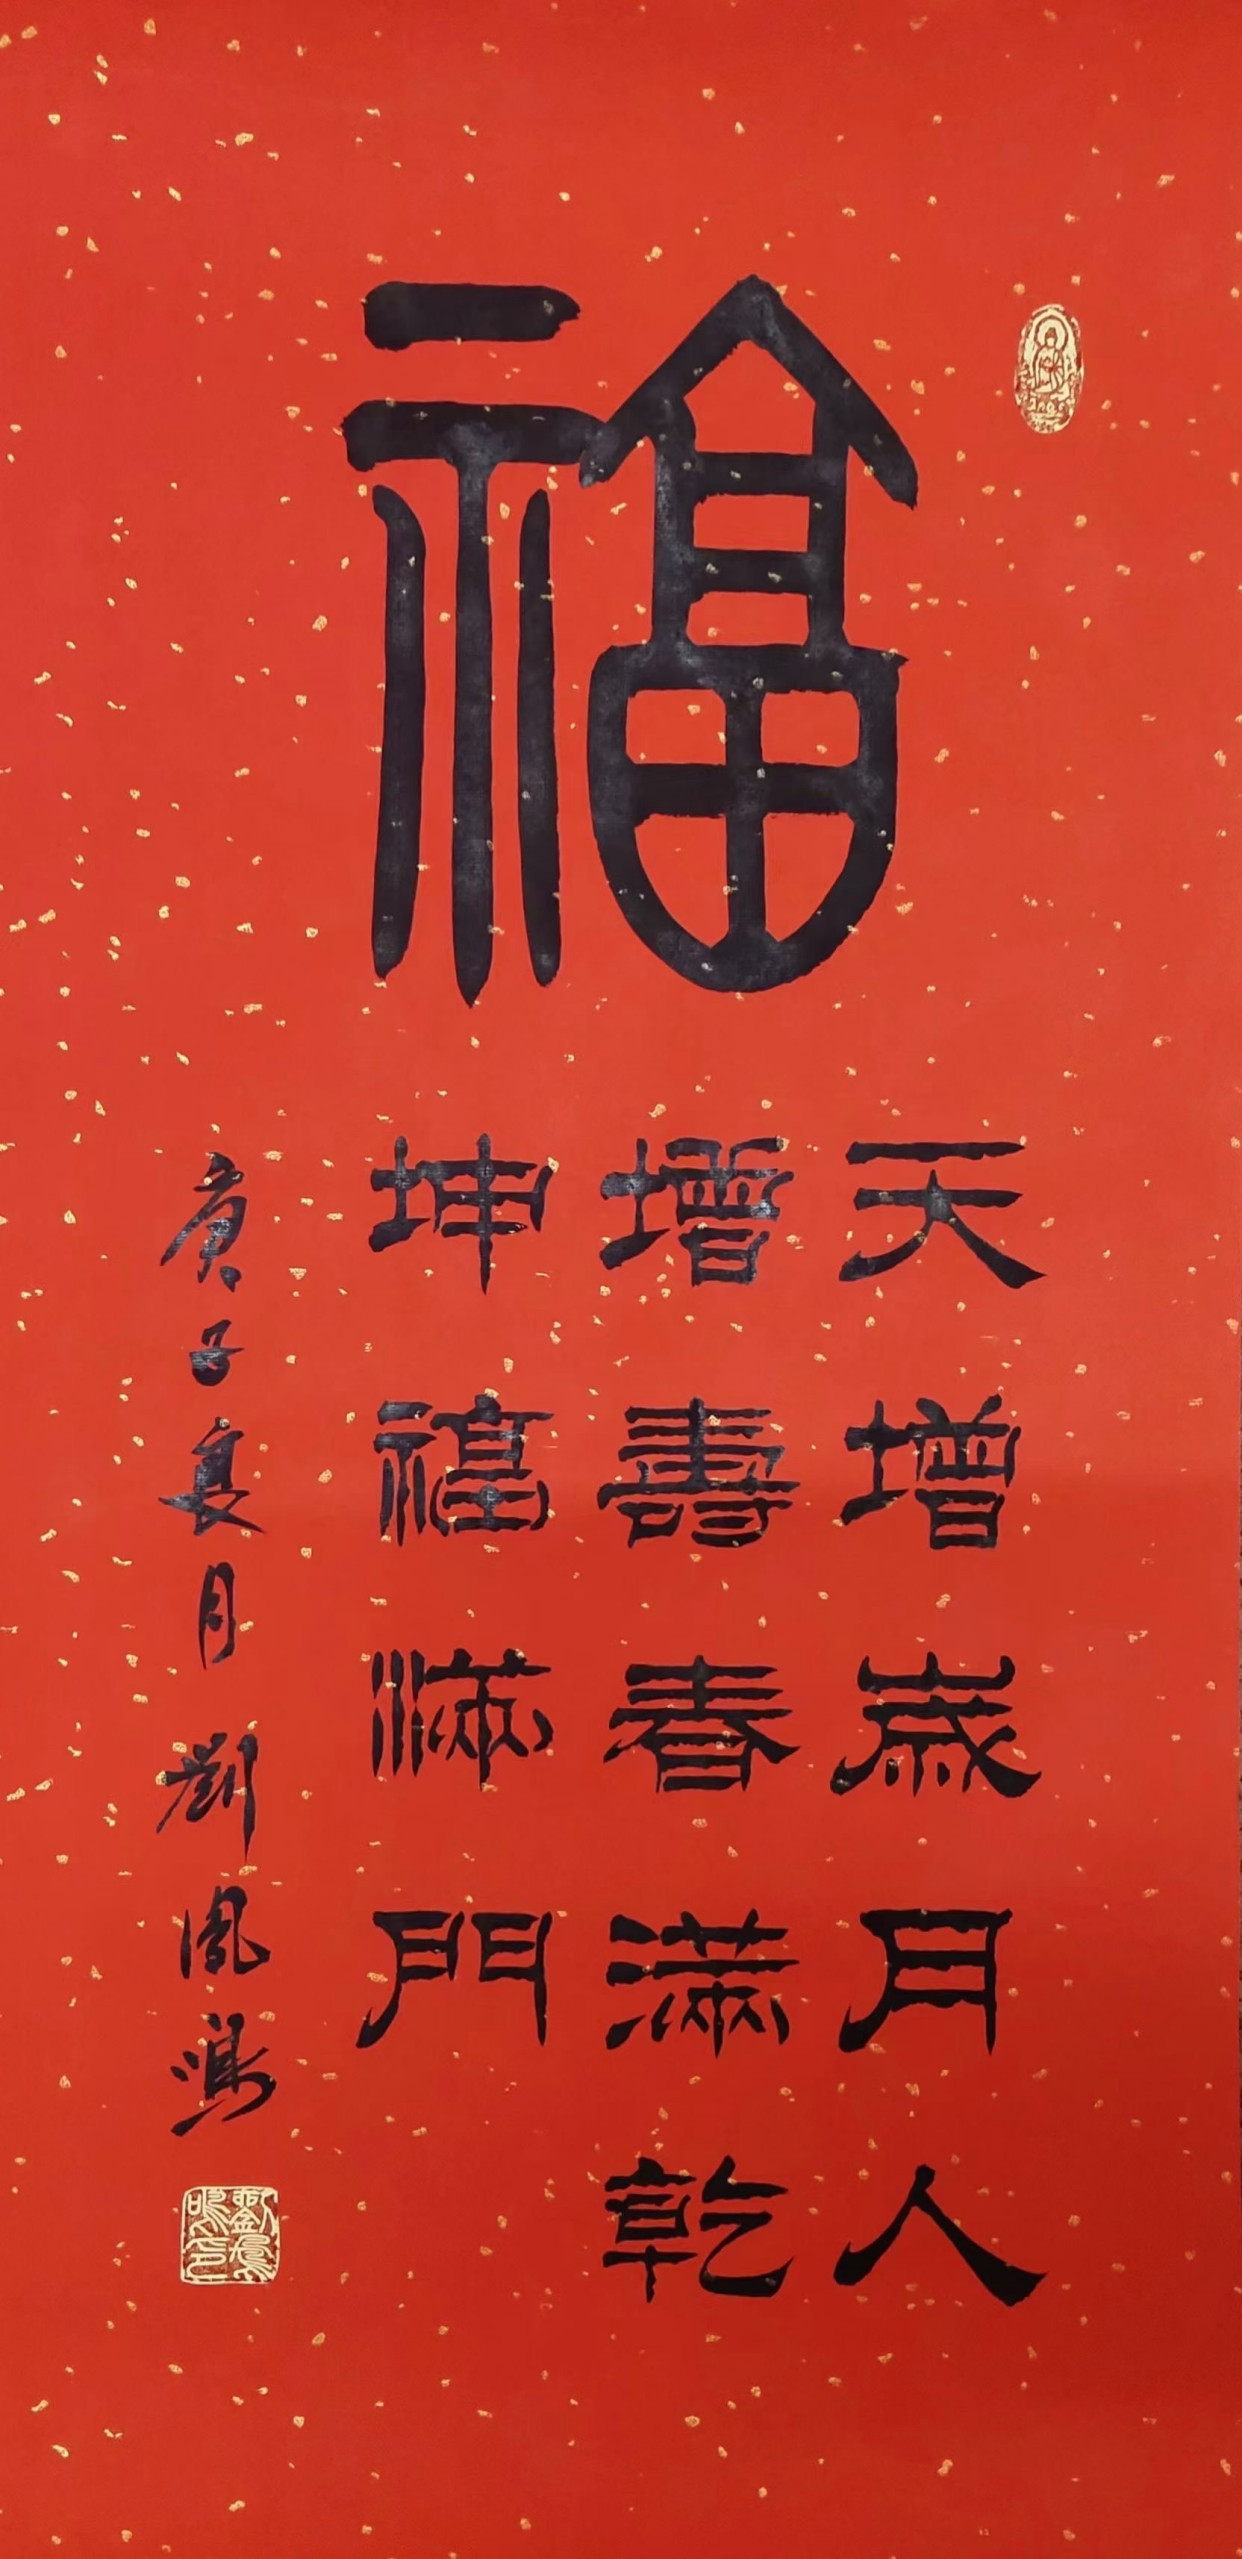 福
天增歲月人
增壽春滿乾
坤福滿門
庚子良月 劉鳳鳴
劉鳳鳴印